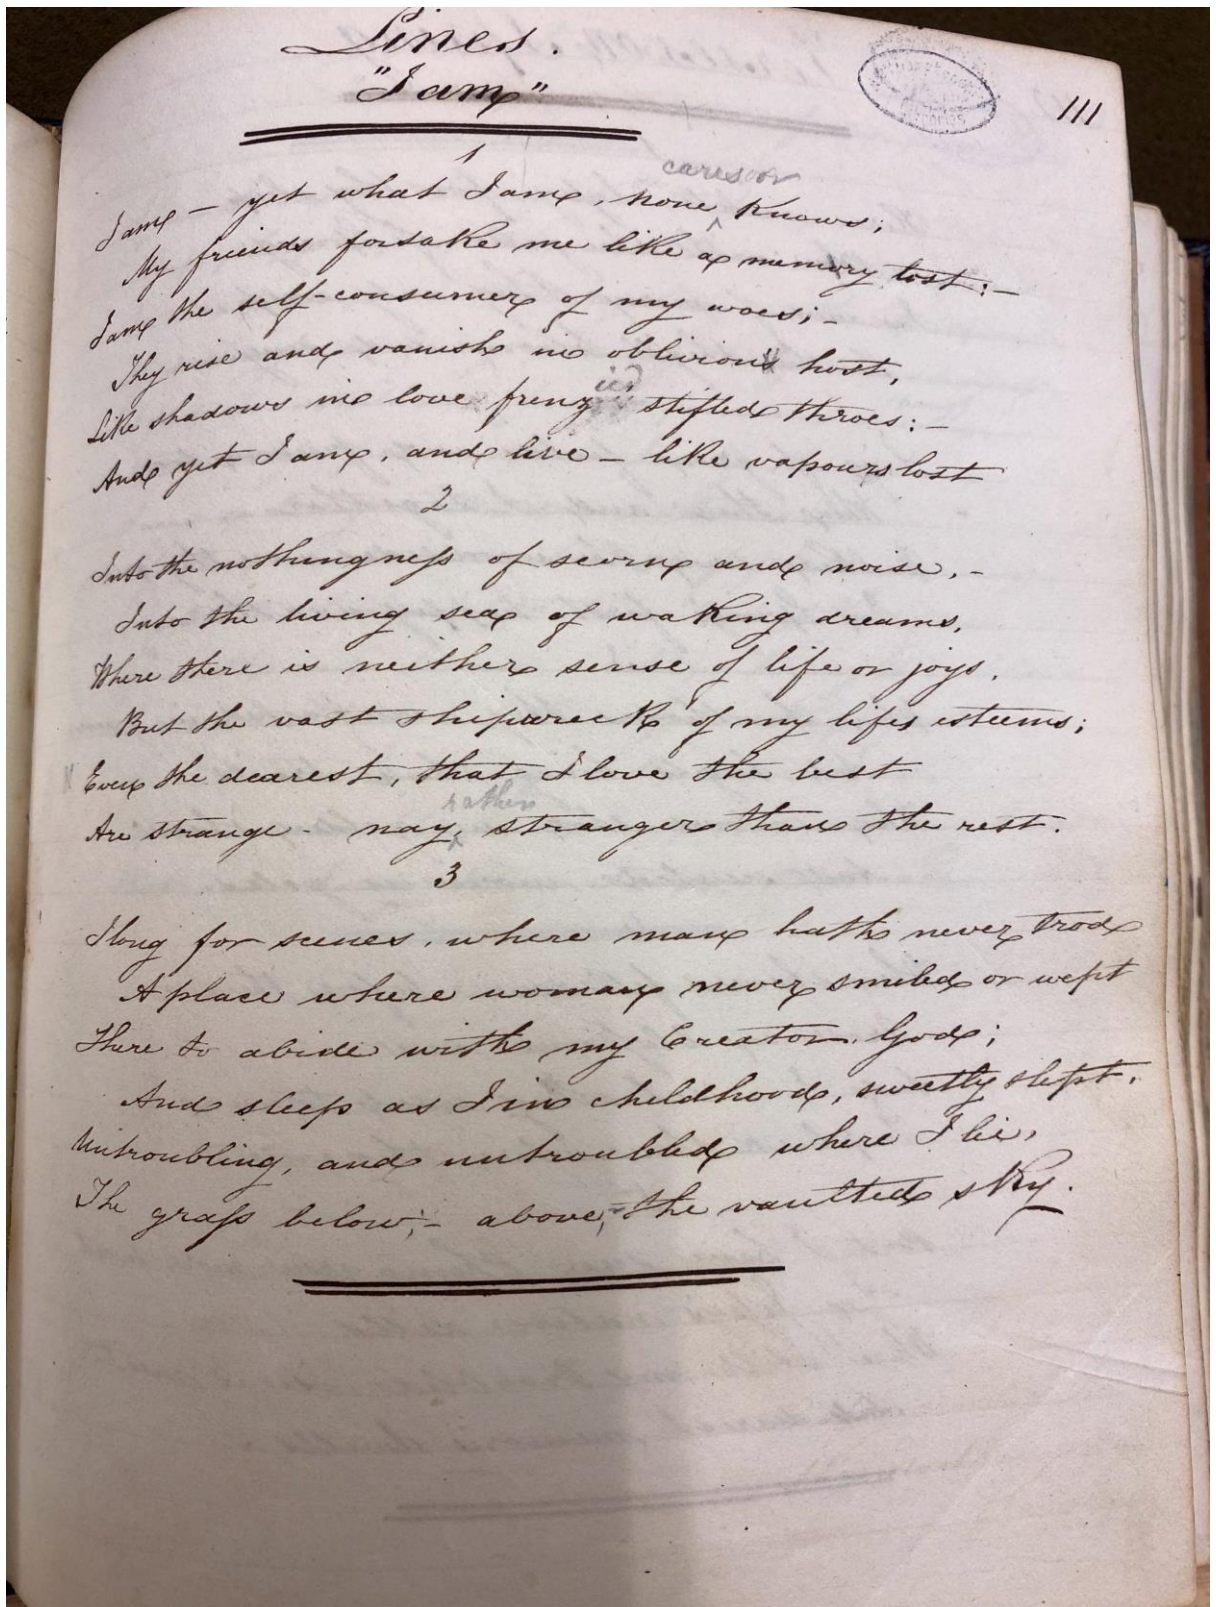 Lines.
"I am"
111
1
cares or
I am – yet what I am, none knows;
My friends forsake me like a memory lost:–
I am the self-consumer of my woes;–
They rise and vanish in oblivions host,
ied
Like shadows in love frenz stifled throes:–
And yet I am, and live – like vapours lost
2
Into the nothingness of scorn and noise,–
Into the living sea of waking dreams,
Where there is neither sense of life or joys,
But the vast shipwreck of my lifes esteems;
Even the dearest, that I love the best
rather
Are strange – nay, stranger than the rest.
3
I long for scenes, where man hath never trod
A place where woman never smiled or wept
There to abide with my Creator, God;
And sleep as I in childhood, sweetly slept,
Untroubling, and untroubled where I lie,
The grass below;– above, the vaulted sky.